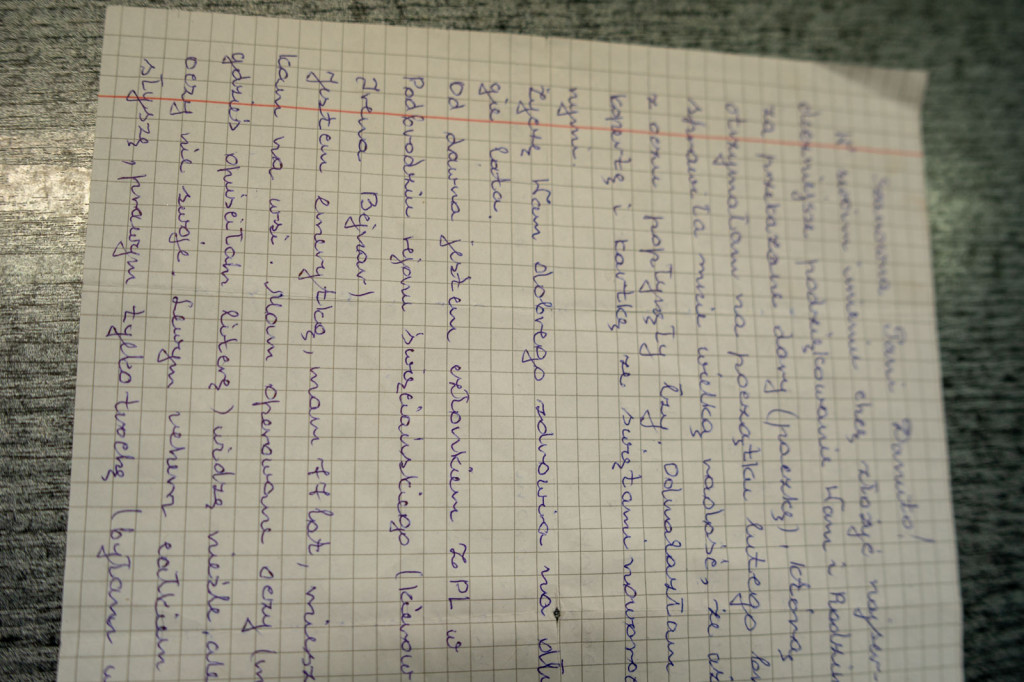 Szanowna Pani Danuto!
W swoim imieniu chcę złożyć najser-
deczniejsze podziękowanie Wam i Rodzin
za przekazane dary (paczkę), którąś
otrzymałam na początku lutego br
sprawiła mnie wielką radość, że aż
z oczu popłynęły łzy. Odnalazłam
kopertę i kartkę ze świętami noworoc
nymi.
Życzę Wam dobrego zdrowia na dłu
gie lata.
Od dawna jestem członkiem ZPL w
Podbrodziu rejonu święciańskiego (kierow
Irena Bejnar)
Jestem emerytką, mam 77 lat, miesz
kam na wsi. Mam operowane oczy (m
gdzieś opuściłam literę) widzę nieźle, ale
oczy nie swoje. Lewym uchem całkiem
słyszę, prawym tylko trochę (byłam w